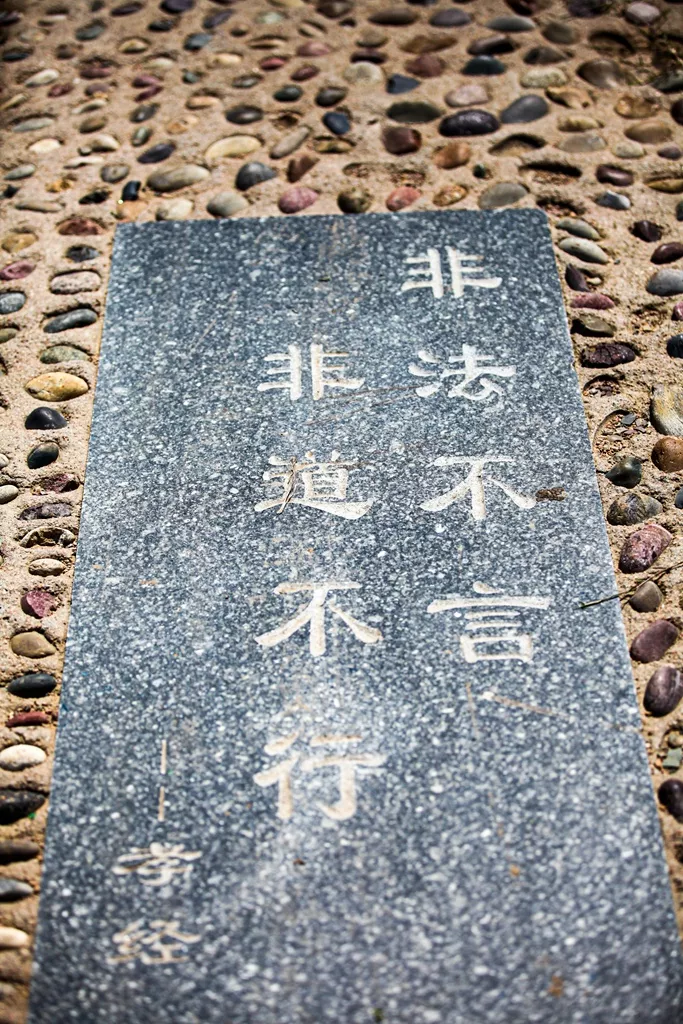 非法不言
非道不行
——孝经